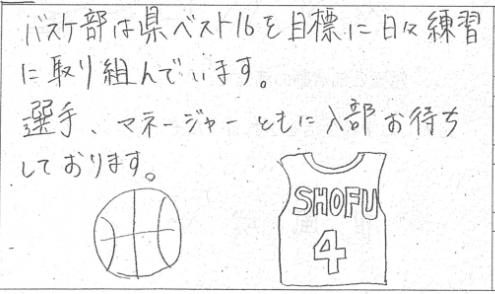 バスケ部は県ベスト16を目標に日々練習
に取り組んでいます。
選手、マネージャーともに入部お待ち
しております。
SHOFU
4